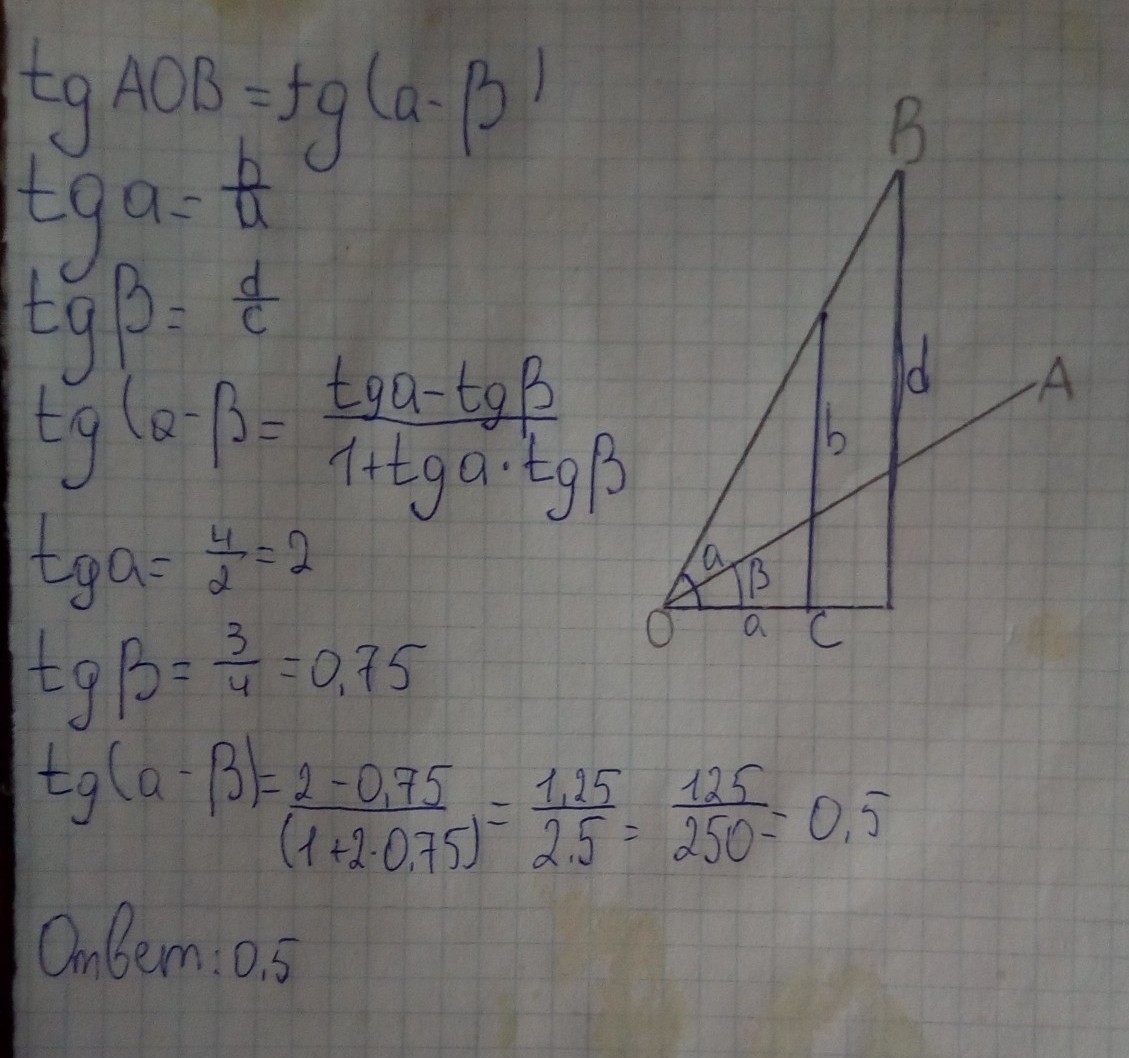 tg AOB = tg(a - β)
tg a = b/a
tg β = d/c
tg(a - β = (tg a - tg β)/(1 + tg a · tg β)
tg a = 4/2 = 2
tg β = 3/4 = 0,75
tg(a - β) = (2 - 0,75)/((1 + 2 · 0,75)) = 1,25/2,5 = 125/250 = 0,5
Ответ: 0,5
B
d
A
b
a
β
O
a
C